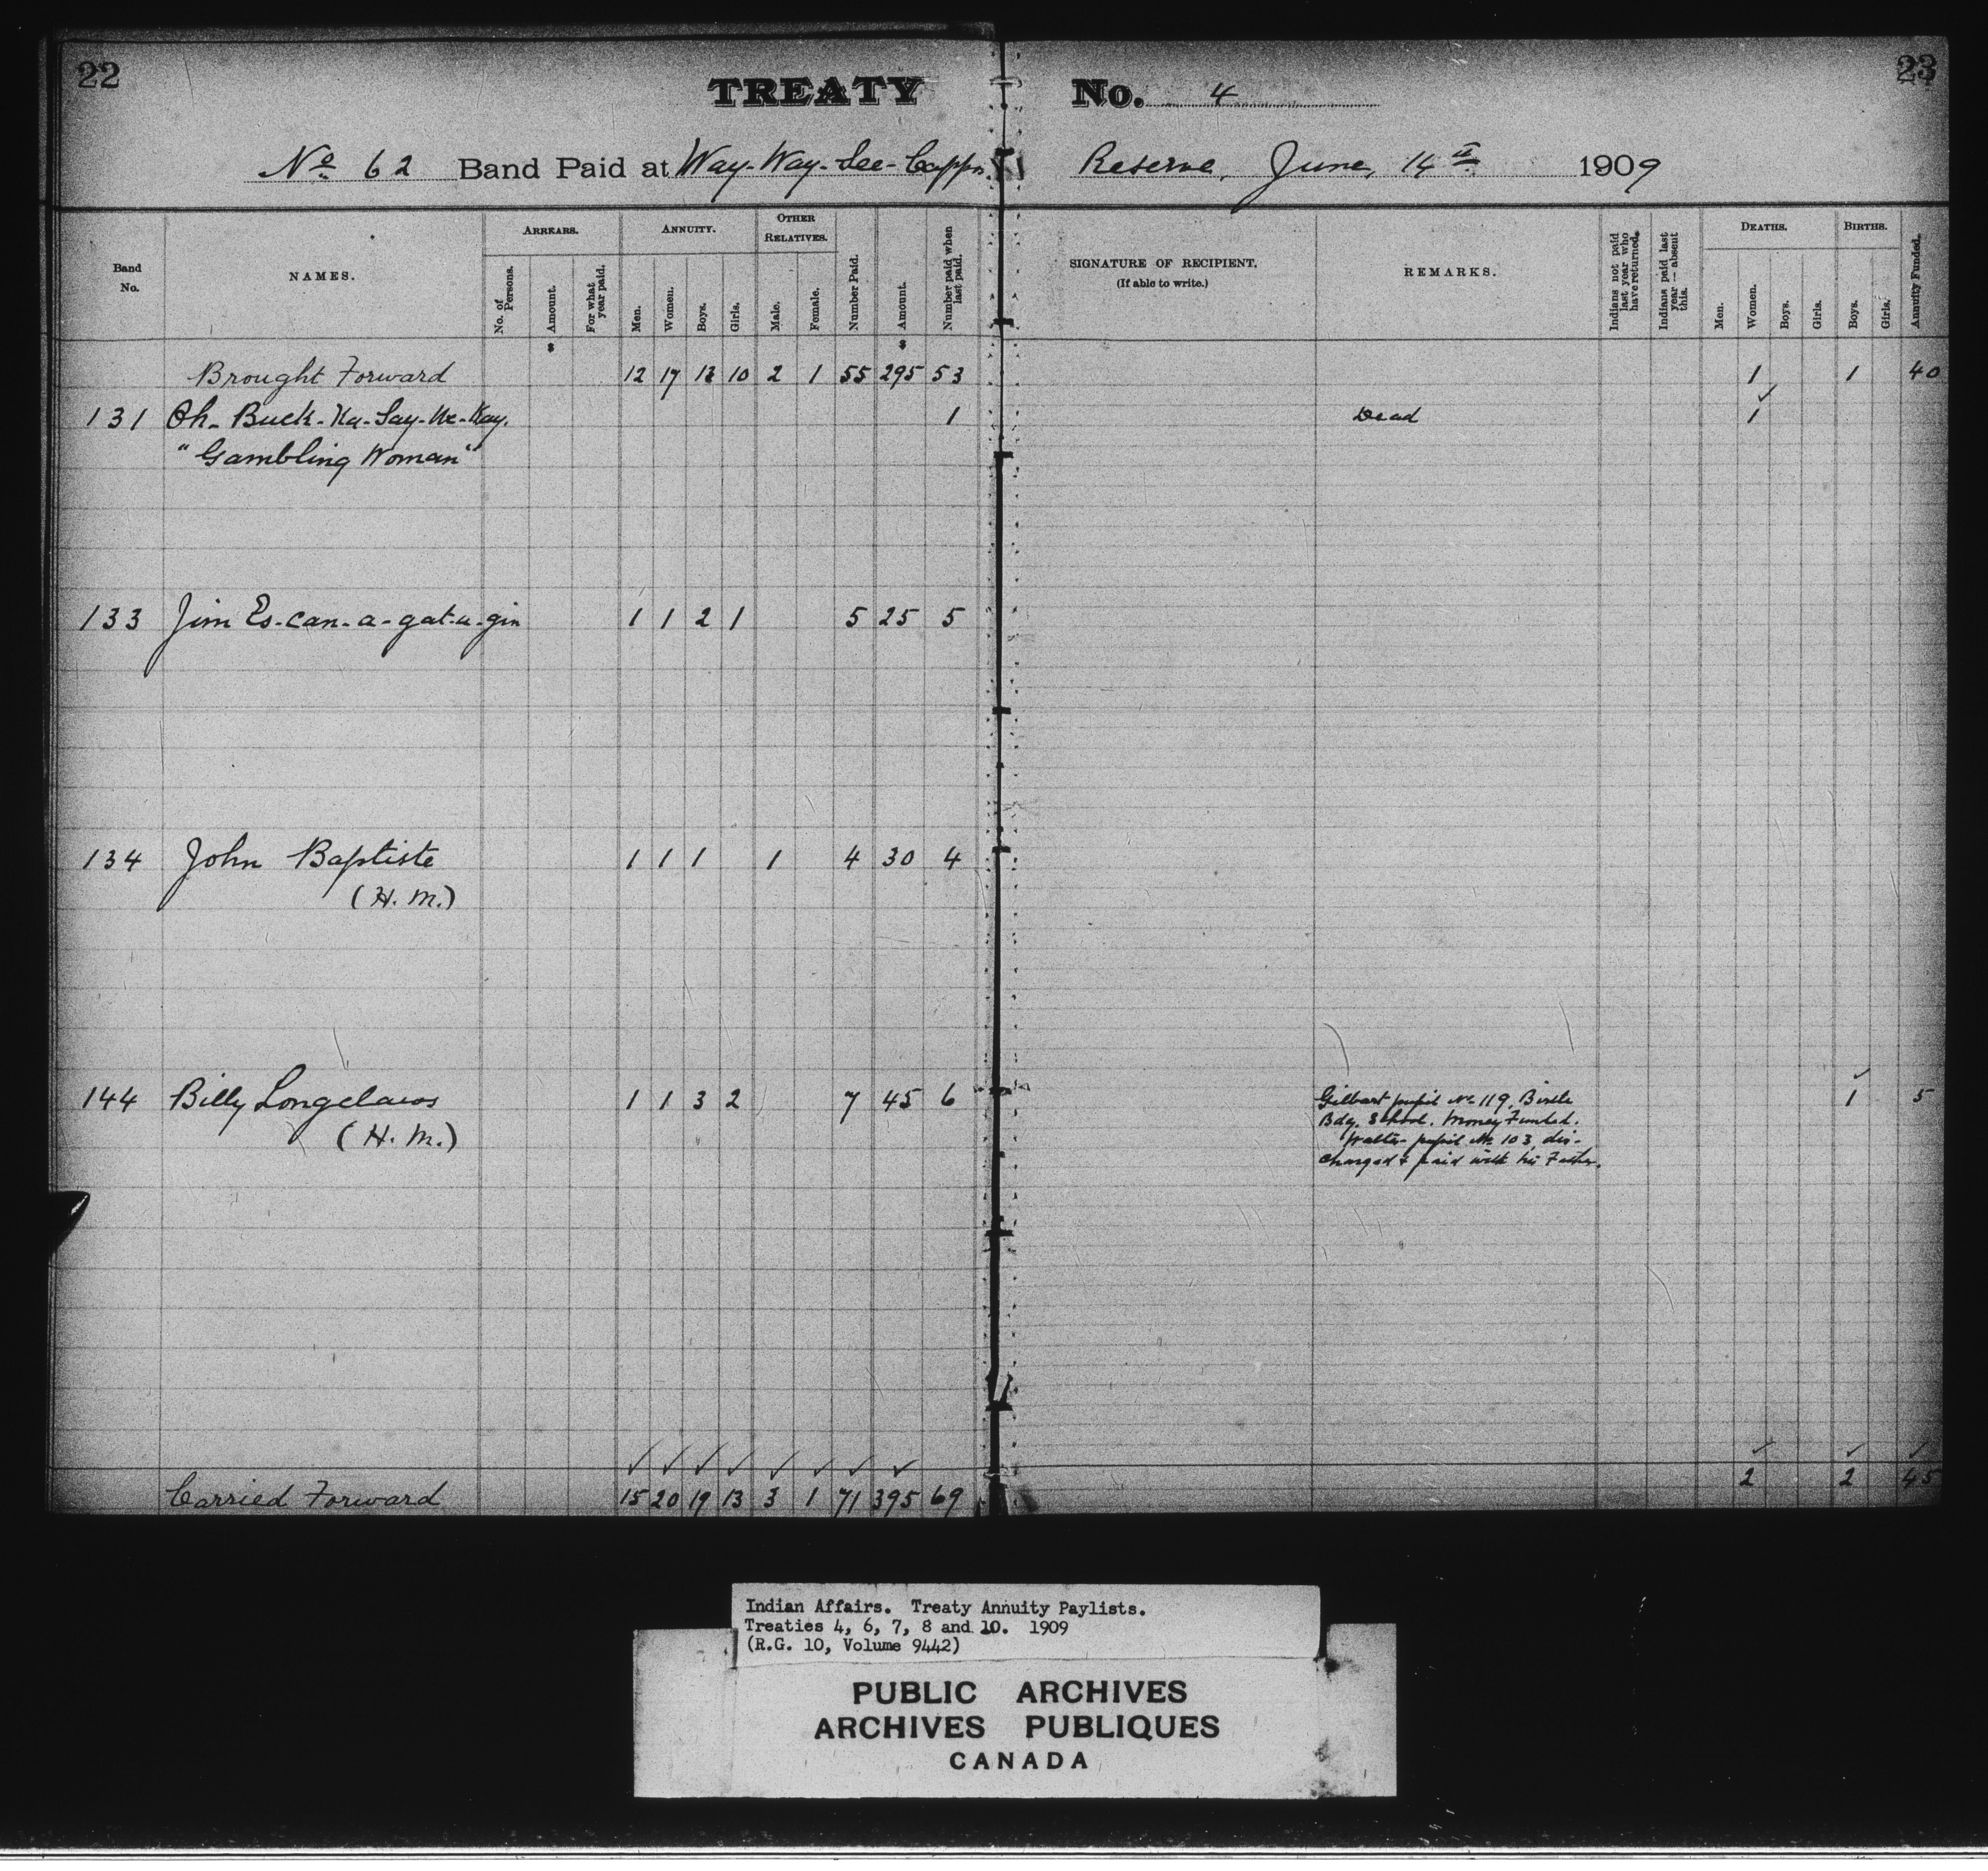 22
23
TREATY No. 4
No 62 Band Paid at Way-Way-See-Cappo Reserve, June, 14th 1909
Band No.
NAMES.
ARREARS.
No. of Persons.
Amount.
For what year paid.
ANNUITY.
Men.
Women.
Boys.
Girls.
OTHER RELATIVES.
Male.
Female.
Number Paid.
Amount.
Number paid when last paid.
SIGNATURE OF RECIPIENT.
(If able to write.)
REMARKS.
Indians not paid last year who have returned.
Indians paid last year — absent this.
DEATHS.
Men.
Women.
Boys.
Girls.
BIRTHS.
Boys.
Girls.
Annuity Funded.
$ $
Brought Forward 12 17 13 10 2 1 55 295 53 1 1 40
131 Oh-Buck-Ka-Say-We-Kay. 1 Dead 1
"Gambling Woman"
133 Jim Es-can-a-gat-u-gin 1 1 2 1 5 25 5
134 John Baptiste 1 1 1 1 4 30 4
(H. M.)
144 Billy Longclaws 1 1 3 2 7 45 6 Gilbert pupil No 119, Birtle 1 5
(H. M.)
Bdg. School. Money Funded.
Walter pupil No 103, dis-
charged & paid with his Father.
Carried Forward 15 20 19 13 3 1 71 395 69 2 2 45
Indian Affairs. Treaty Annuity Paylists.
Treaties 4, 6, 7, 8 and 10. 1909
(R.G. 10, Volume 9442)
PUBLIC ARCHIVES
ARCHIVES PUBLIQUES
CANADA